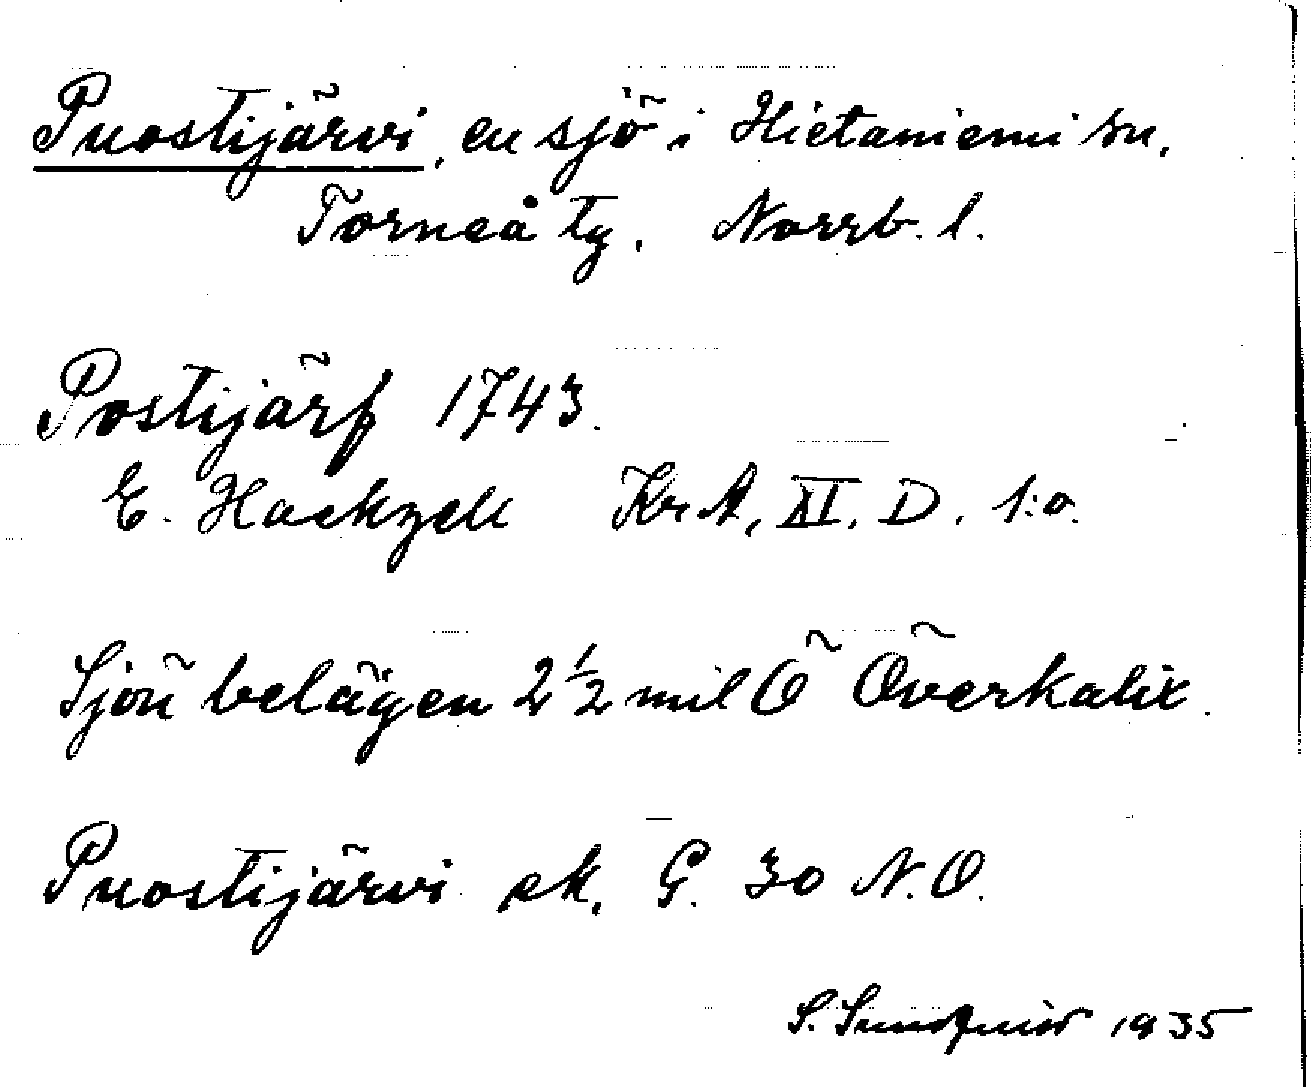 Puostijärvi, en sjö i Hietaniemi sn,
Torneå tg, Norrb. l.
Postijärf 1743.
E. Hackzell Kr A, XI. D. 1:a.
Sjön belägen 2 1/2 mil Ö Överkalix.
Puostijärvi ek. G. 30 N.O.
S. Sundqvist 1935